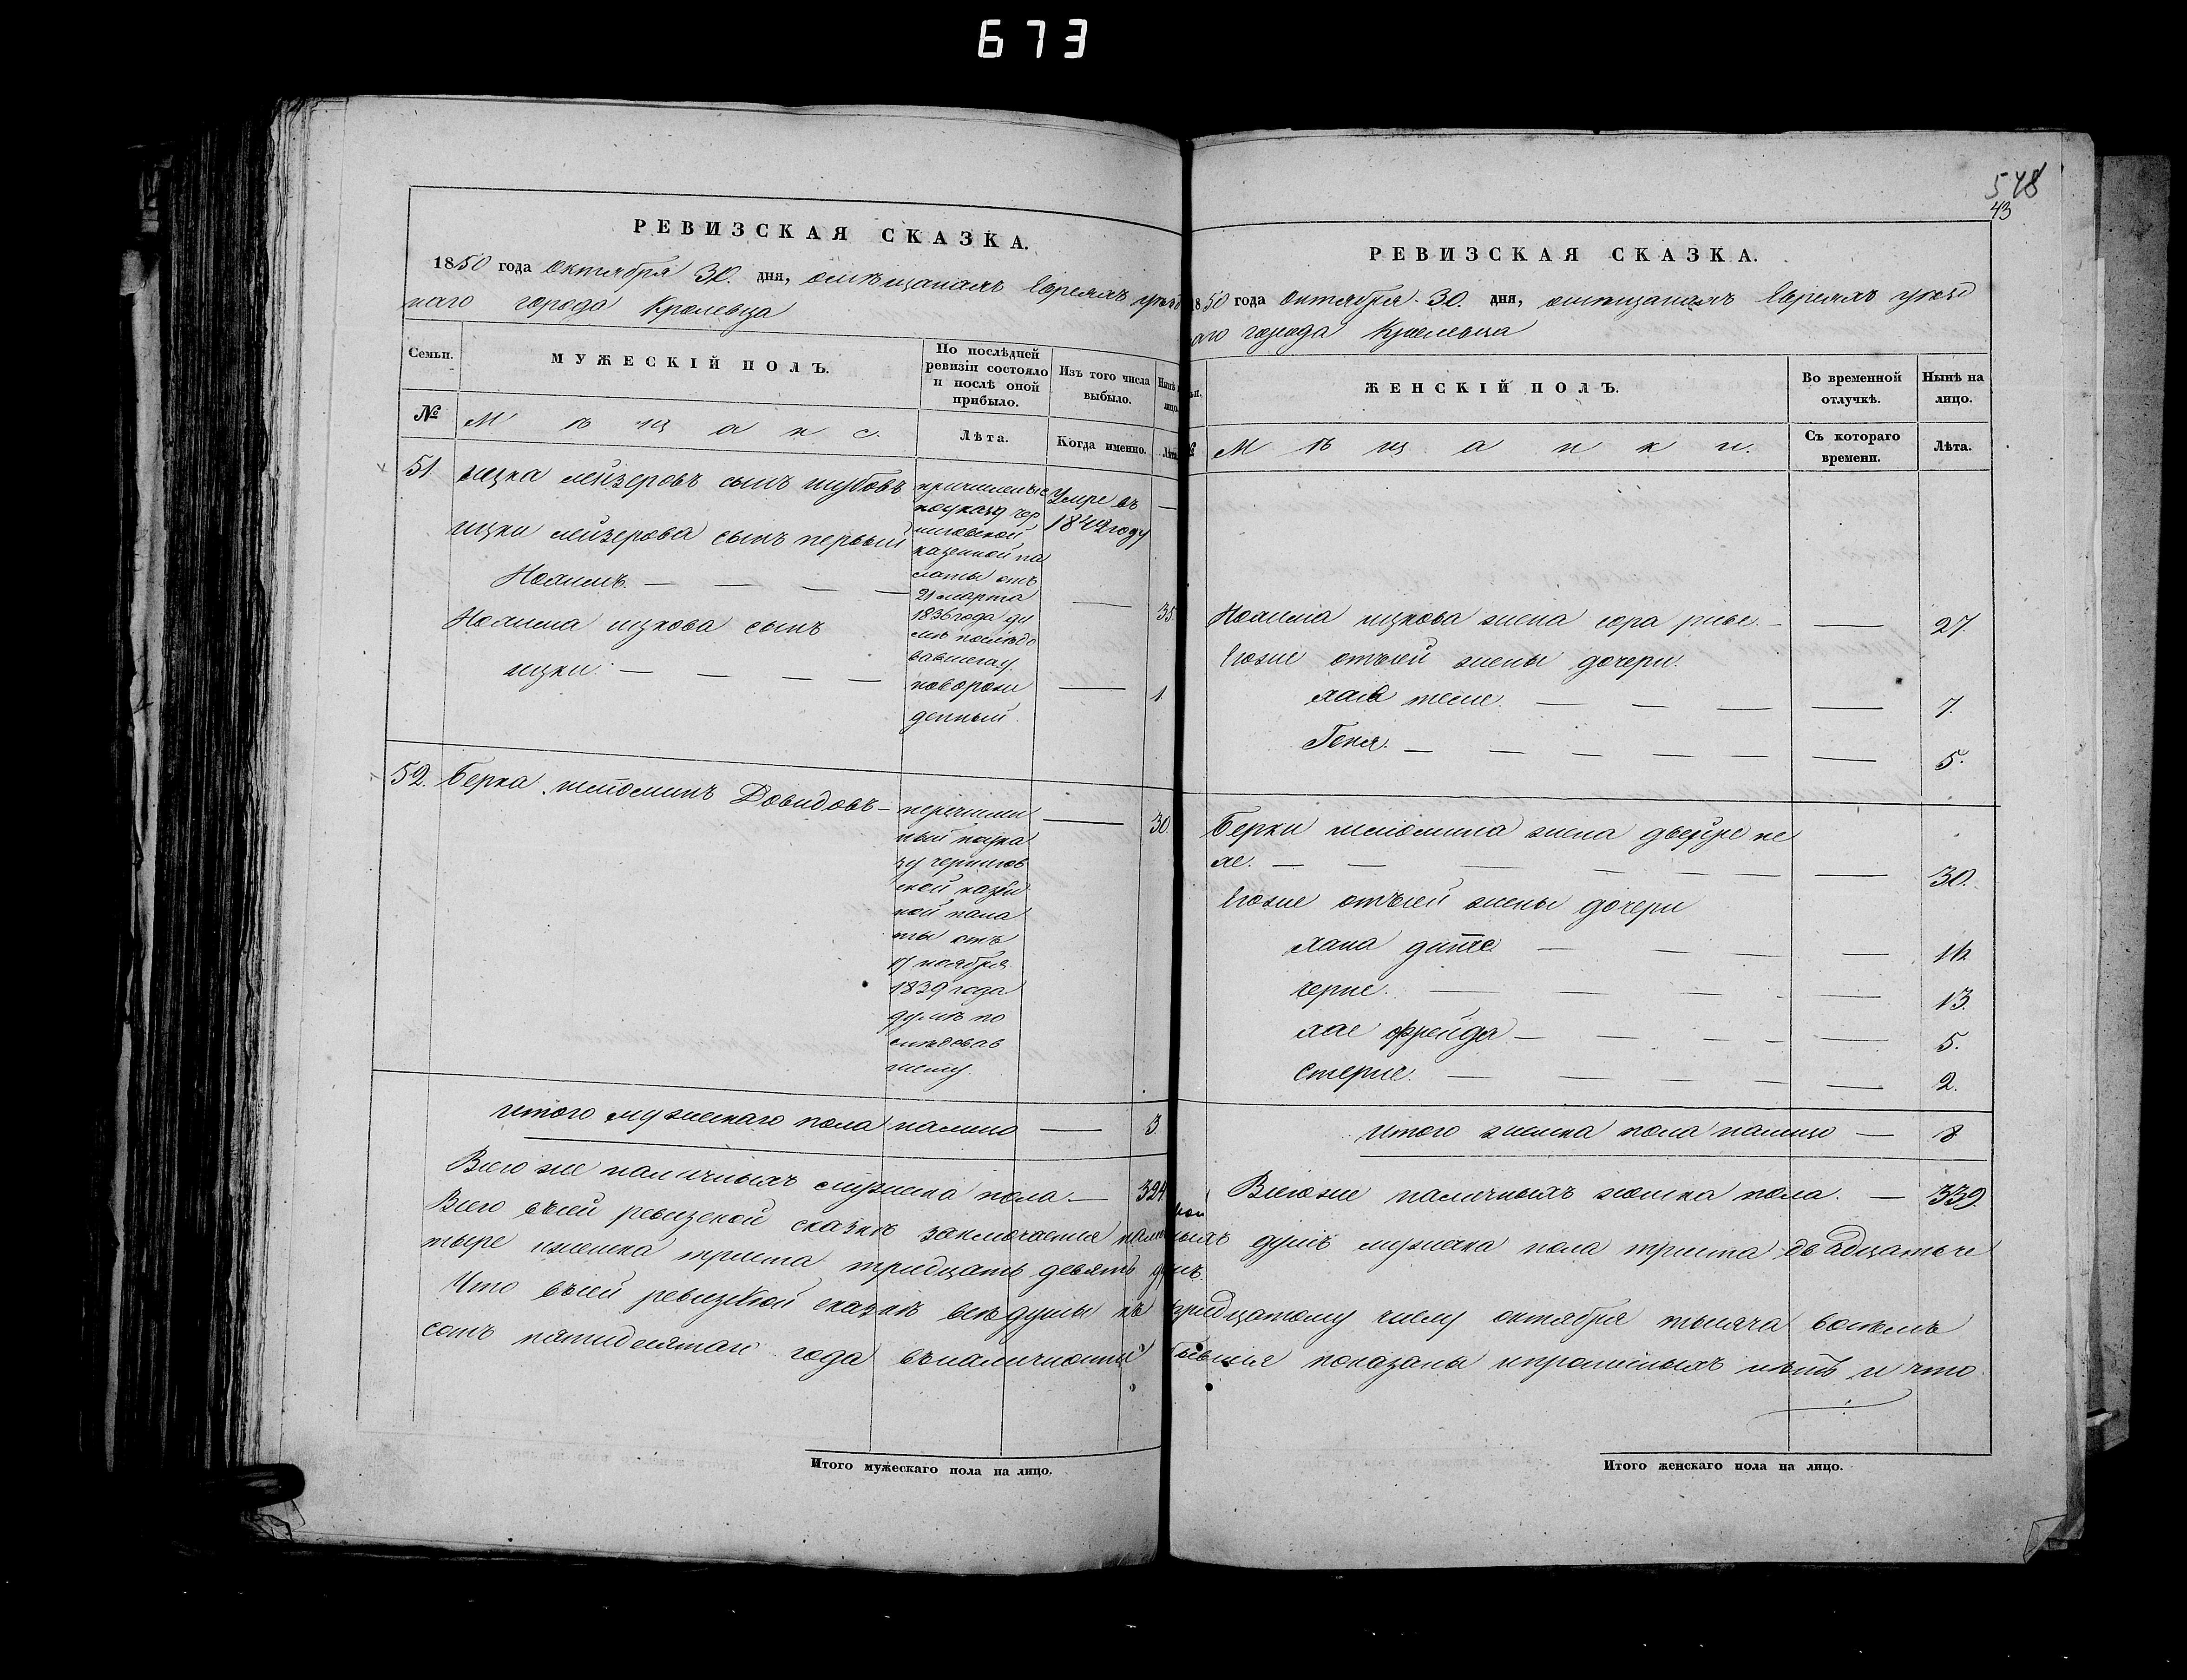 673
РЕВИЗСКАЯ СКАЗКА.
1850 года Октября 30. дня, омѣщанахъ Евреяхъ уѣзд
наго города Кролевца
Семьи.
МУЖЕСКІЙ ПОЛЪ.
По послѣдней
ревизіи состояло
и послѣ оной
прибыло.
Изъ того числа
выбыло.
№
Мѣщане.
Лѣта.
Когда именно.
51. ицка лейзеровъ сынъ шубовъ
причисленые
поуказу чер
ниговской
казенной па
латы отъ
21 марта
1836 года ду
мѣ послѣдо
вавшему.
Умре въ
1842 году
—
ицки лейзерова сынъ первый
Нохимъ. — — — —
—
35.
Нохима ицкова сынъ
ицки. — — — —
новорожи
денный.
—
1
52. Берка шломинъ Довидовъ —
перечисли
ный поука
зу чернигов
ской казен
ной пала
ты отъ
17 ноября
1839 года
думѣ по
слѣдовав
шему.
—
30.
итого мужескаго пола налицо — 3
Всегоже наличныхъ мужеска пола. — 324
548
43
РЕВИЗСКАЯ СКАЗКА.
850 года Октября 30. дня, омѣщанахъ Евреяхъ уѣзд
аго города Кролевца
ЖЕНСКІЙ ПОЛЪ.
Во временной
отлучкѣ.
Нынѣ на
лицо.
Мѣщанки.
Съ котораго
времени.
Лѣта.
Нохима ицкова жена сора ривс. — — 27.
Егоже отъсей жены дочери.
хая — — — — 7.
Геня. — — — — — — 5.
Берки шломина жена двейре не
хе. — — — — — — — 30.
Егоже отъсей жены дочери
хана — — — —
черне. — — — — — 13.
хае фрейда — — — — — 5.
стерне. — — — — — 2.
итого женска пола налицо — 8
Всегоже наличныхъ женска пола. — 339.
Всего въсей ревизской сказкѣ заключается наличныхъ душъ мужеска пола триста двадцать че
тыре иженска триста тридцать девять душъ.
Что въсей ревизской сказкѣ всѣ души къ тридцатому числу октября тысяча восемъ
сотъ пятидесятаго года въналичности бывшія показаны ипрописныхъ нѣтъ и что
Итого мужескаго пола на лицо.
Итого женскаго пола на лицо.